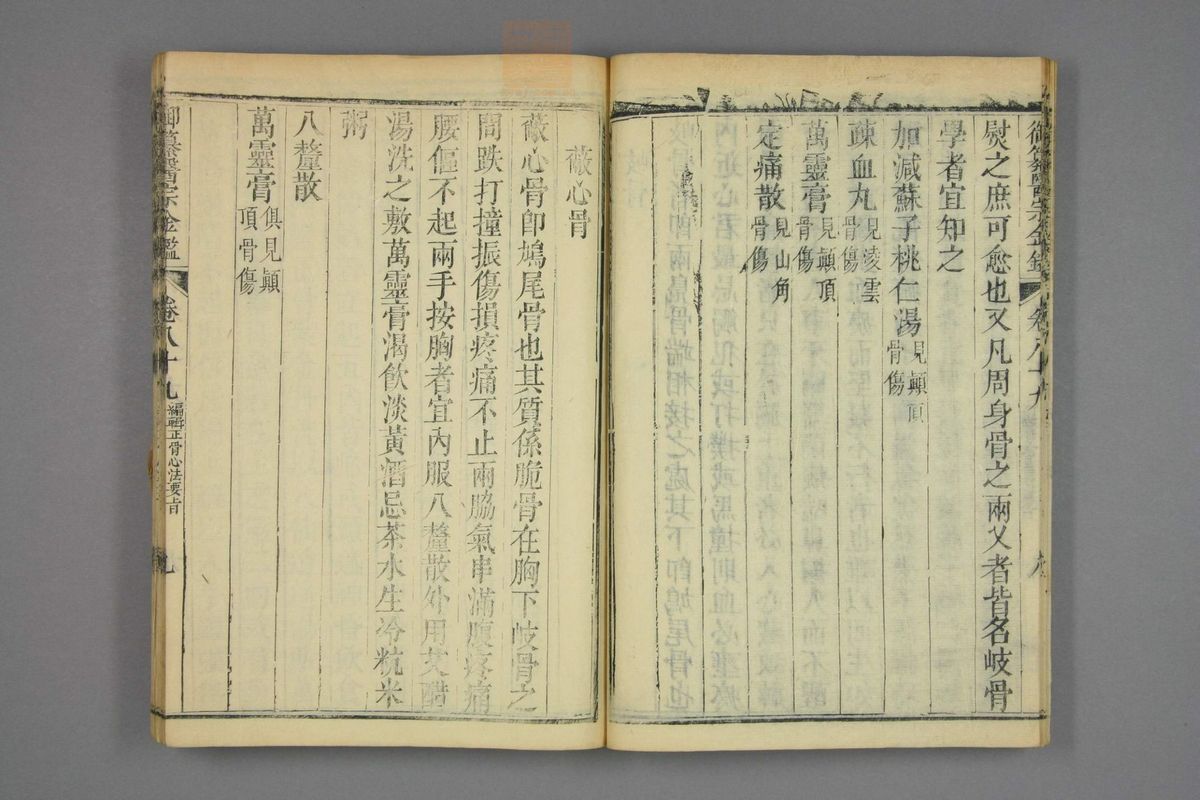 御纂醫宗金鑑 卷八十九
熨之庶可愈也又凡周身骨之兩叉者皆名岐骨
學者宜知之
加減蘇子桃仁湯 見顚頂骨傷
疎血丸 見凌雲骨傷
萬靈膏 見顚頂骨傷
定痛散 見山角骨傷
蔽心骨
蔽心骨卽鳩尾骨也其質係脆骨在胸下岐骨之
間跌打撞振傷損疼痛不止兩脇氣串滿腹疼痛
腰傴不起兩手按胸者宜內服八釐散外用艾醋
湯洗之敷萬靈膏渴飮淡黃酒忌茶水生冷粇米
粥
八釐散
萬靈膏 俱見顚頂骨傷
御纂醫宗金鑑 卷八十九 編輯正骨心法要旨